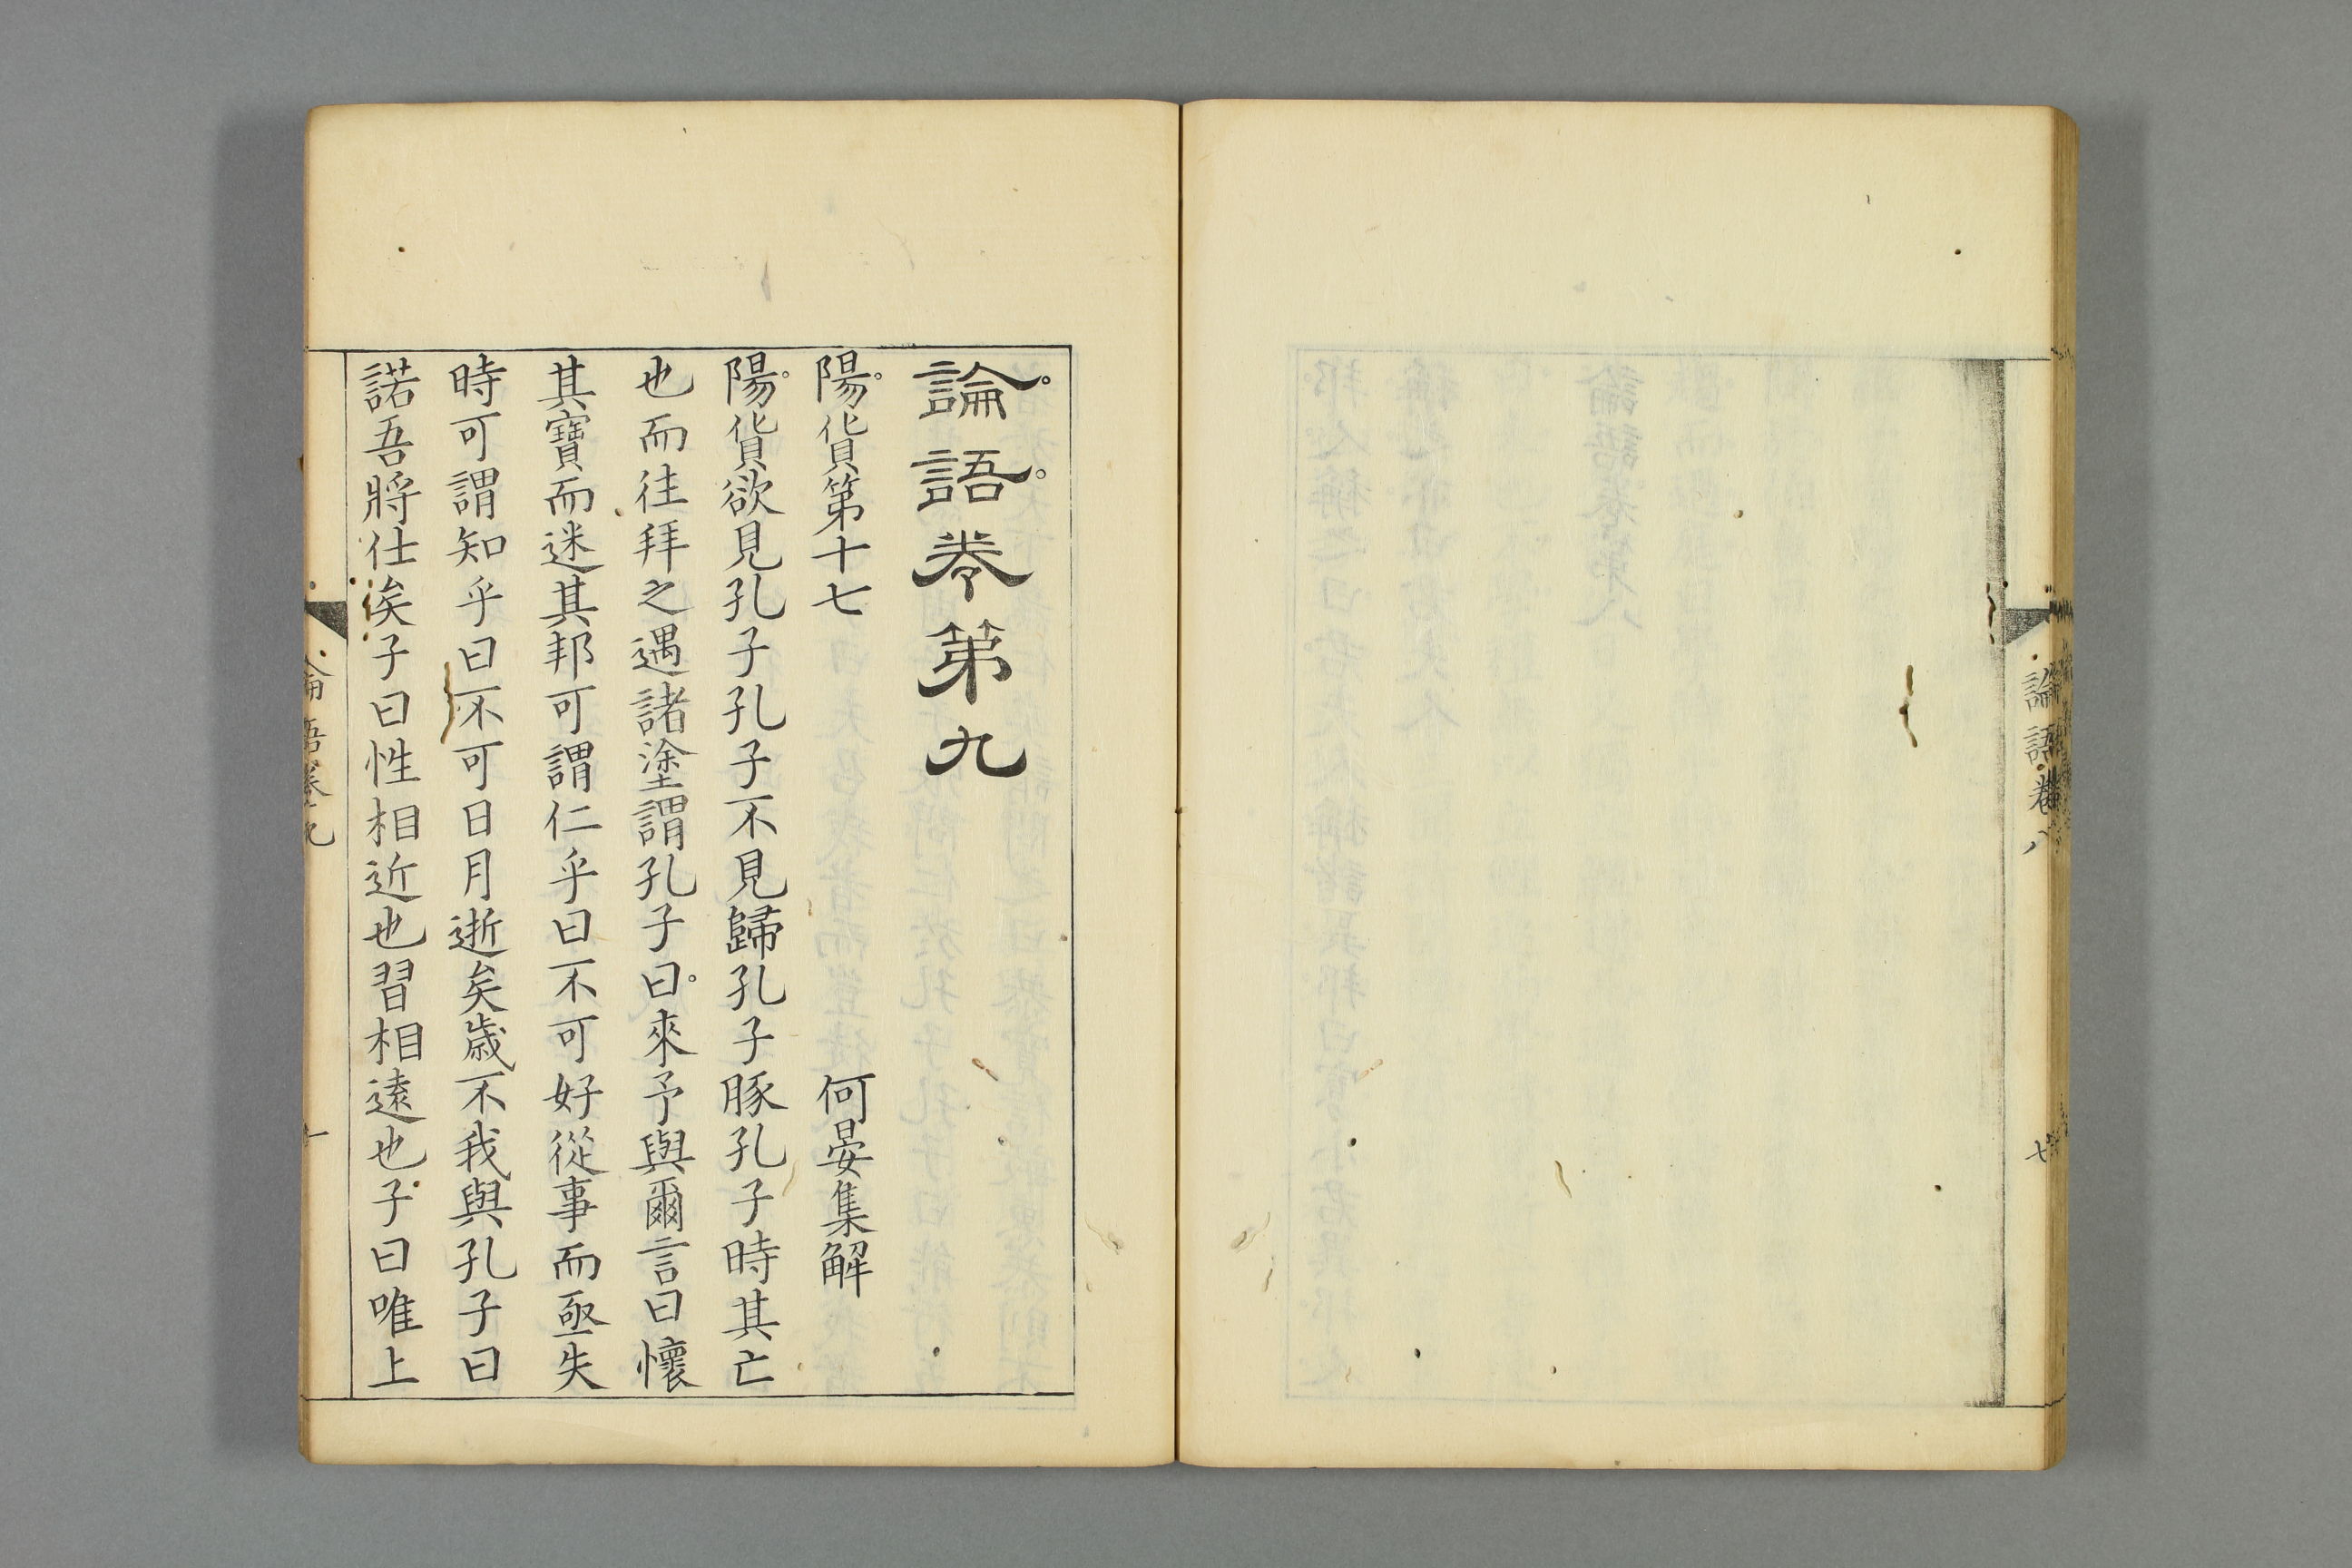 論語卷八
七
論語卷第九
陽貨第十七 何晏集解
陽貨欲見孔子孔子不見歸孔子豚孔子時其亡
也而往拜之遇諸塗謂孔子曰來予與爾言曰懷
其寶而迷其邦可謂仁乎曰不可好從事而亟失
時可謂知乎曰不可日月逝矣歳不我與孔子曰
諾吾將仕矣子曰性相近也習相遠也子曰唯上
論語卷九
一